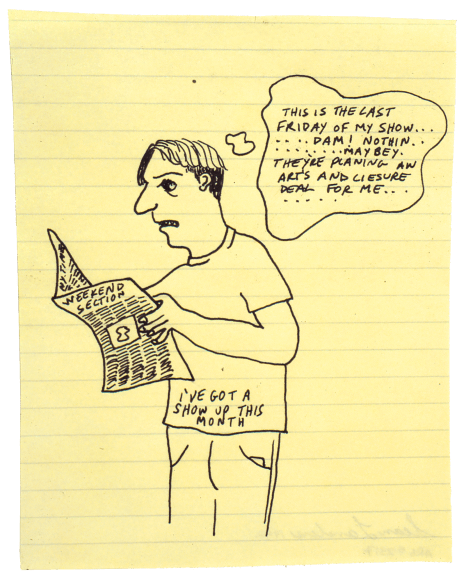 THIS IS THE LAST
FRIDAY OF MY SHOW...
.....DAM! NOTHIN..
.........MAYBEY.
THEY'RE PLANING AN
ARTS AND LIESURE
DEAL FOR ME...
......
WEEKEND
SECTION
I'VE GOT A
SHOW UP THIS
MONTH